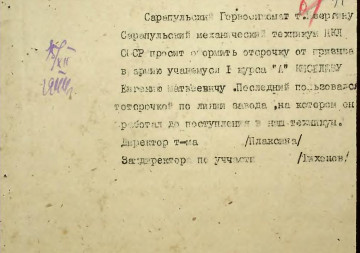 Сарапульский Горвоенкомат т.
Сарапульский механический техникум НКЛ
СССР просит оформить отсрочку от призыва
в армию учащемуся I курса "А"
Евгению Матвеевичу .Последний пользовался
отсрочкой по линии завода ,на котором он
работал до поступления в наш техникум.
Директор т-ма /Плаксина/
Замдиректора по уччасти /Тиханов/